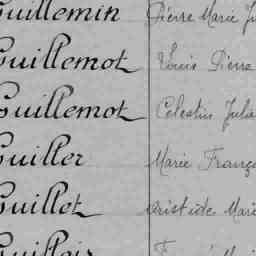 Guillemin Pierre Marie
Guillemot Louis Pierre
Guillemot Celestin
Guiller Marie
Guillet Aristide Marie